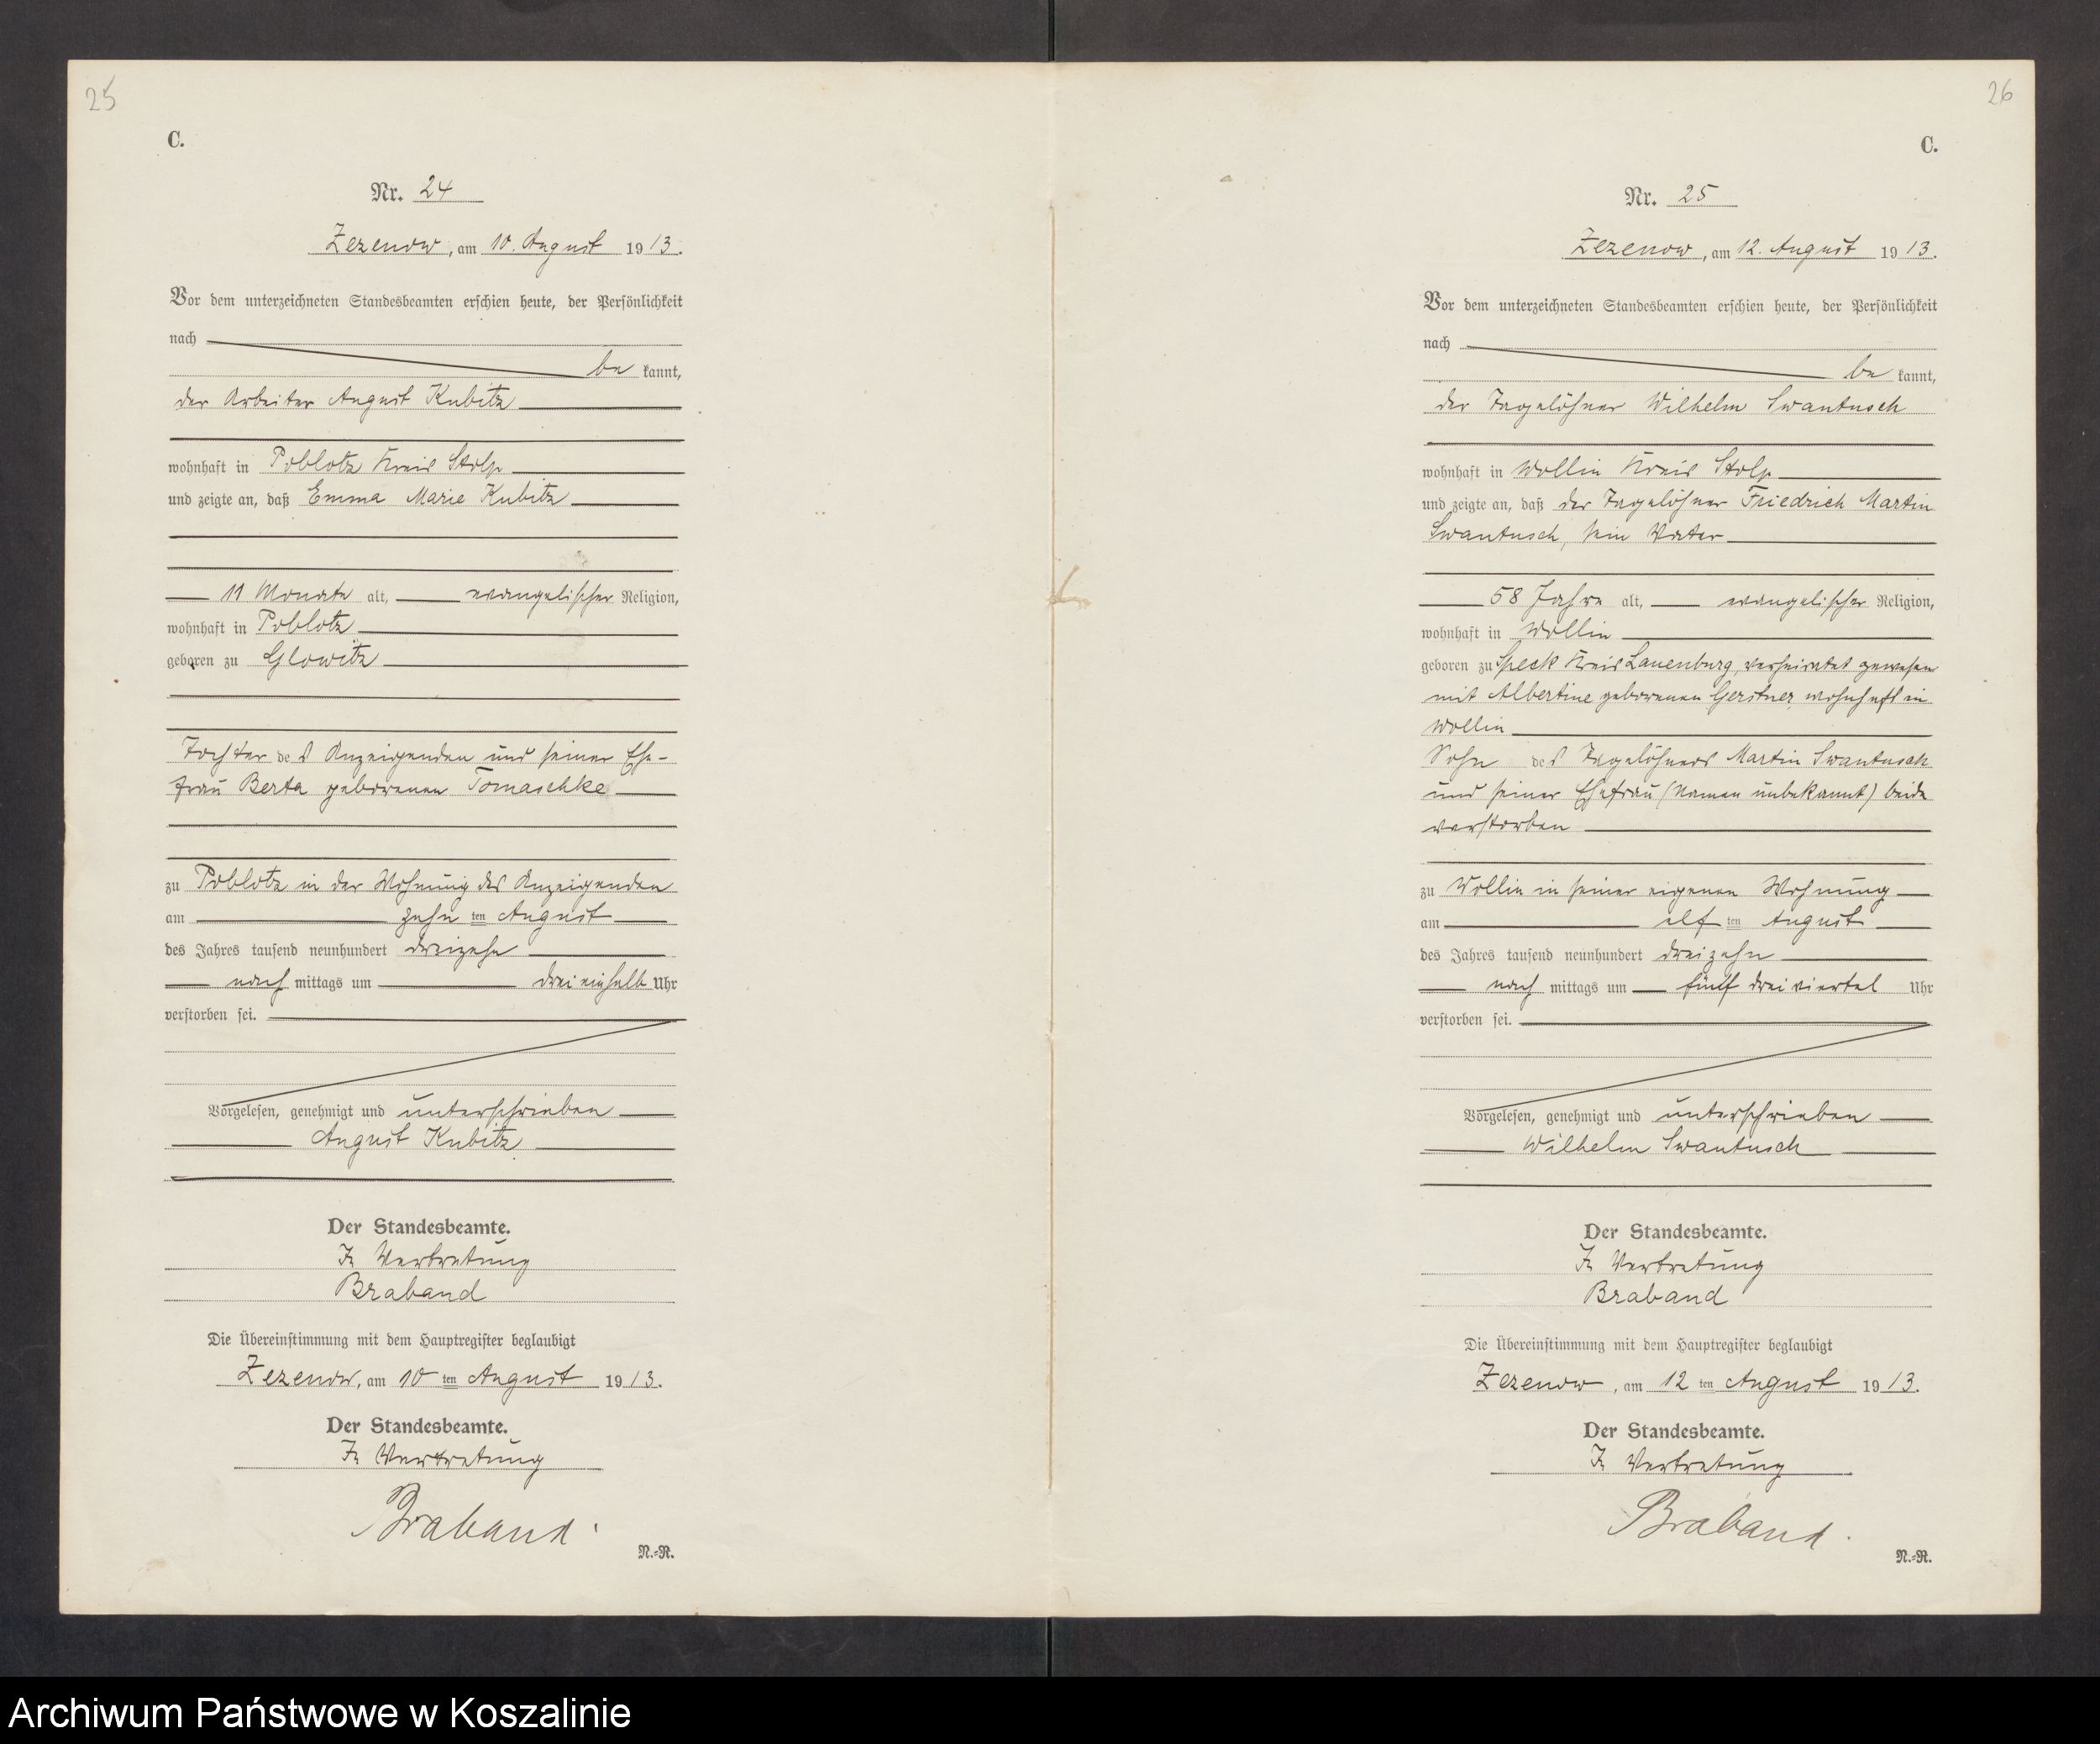 25
C.
Nr. 24
Zezenow, am 10. August 1913.
Vor dem unterzeichneten Standesbeamten erschien heute, der Persönlichkeit
nach
be kannt,
der Arbeiter August Kubitz
wohnhaft in Poblotz Kreis Stolp
und zeigte an, daß Emma Marie Kubitz
11 Monate alt, evangelischer Religion,
wohnhaft in Poblotz
geboren zu Glowitz
Tochter des Anzeigenden und seiner Ehe-
frau Berta geborenen Tomaschke
zu Poblotz in der Wohnung des Anzeigenden
am zehn ten August
des Jahres tausend neunhundert dreizehn
nach mittags um drei einhalb Uhr
verstorben sei.
Vorgelesen, genehmigt und unterschrieben
August Kubitz
Der Standesbeamte.
In Vertretung
Braband
Die Übereinstimmung mit dem Hauptregister beglaubigt
Zezenow, am 10 ten August 1913.
Der Standesbeamte.
In Vertretung
Braband.
N.=R.
26
C.
Nr. 25
Zezenow, am 12. August 1913.
Vor dem unterzeichneten Standesbeamten erschien heute, der Persönlichkeit
nach
be kannt,
der Tagelöhner Wilhelm Swantusch
wohnhaft in Wollin Kreis Stolp
und zeigte an, daß der Tagelöhner Friedrich Martin
Swantusch, sein Vater
58 Jahre alt, evangelischer Religion,
wohnhaft in Wollin
geboren zu Speck Kreis Lauenburg, verheiratet gewesen
mit Albertine geborenen Gerstner, wohnhaft in
Wollin
Sohn des Tagelöhners Martin Swantusch
und seiner Ehefrau (Namen unbekannt) beide
verstorben
zu Wollin in seiner eigenen Wohnung
am elf ten August
des Jahres tausend neunhundert dreizehn
nach mittags um fünf dreiviertel Uhr
verstorben sei.
Vorgelesen, genehmigt und unterschrieben
Wilhelm Swantusch
Der Standesbeamte.
In Vertretung
Braband
Die Übereinstimmung mit dem Hauptregister beglaubigt
Zezenow, am 12 ten August 1913.
Der Standesbeamte.
In Vertretung
Braband.
N.=R.
Archiwum Państwowe w Koszalinie